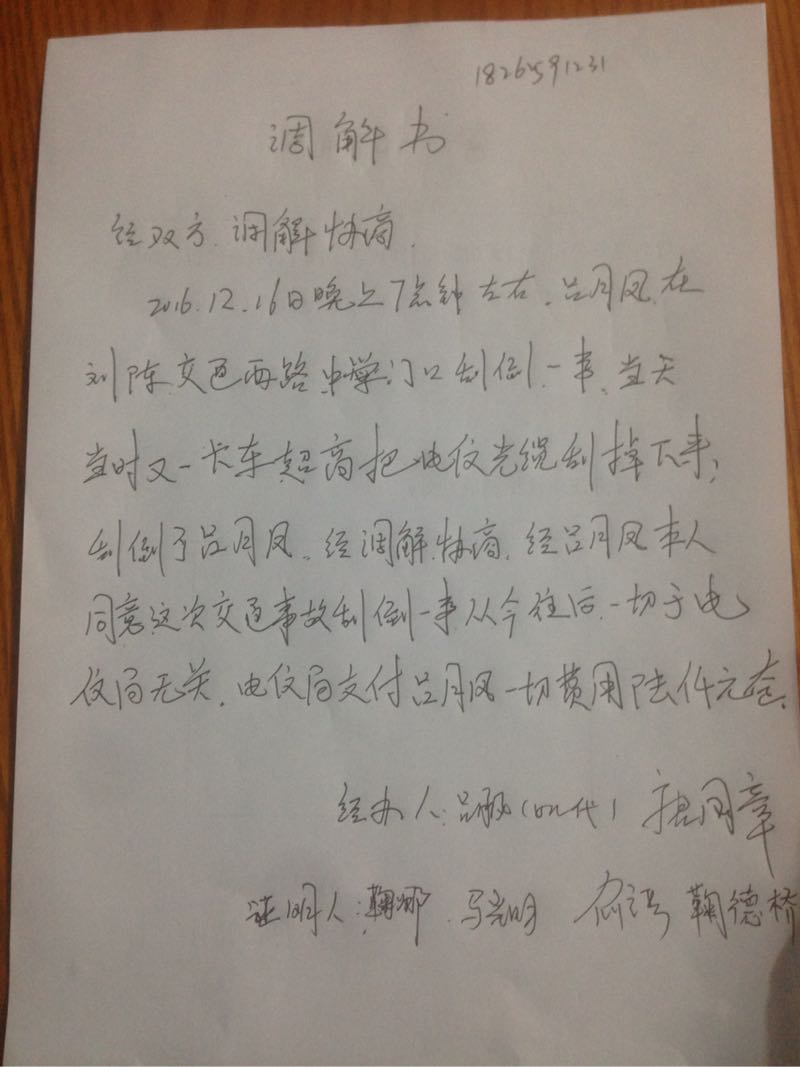 18264591231
调解书
经双方.调解协商.
2016.12.16日晚上7点钟左右.吕月凤.在
刘陈.交通西路.中学门口刮倒.一事.当天
当时又一卡车超高把电仪光缆刮掉下来,
刮倒了吕月凤.经调解.协商.经吕月凤本人
同意这次交通事故刮倒一事.从今往后.一切于电
仪局无关.电仪局支付吕月凤一切费用陆仟元
经办人:吕 代) 同章
证明人:鞠娜 马光明 鞠德桥